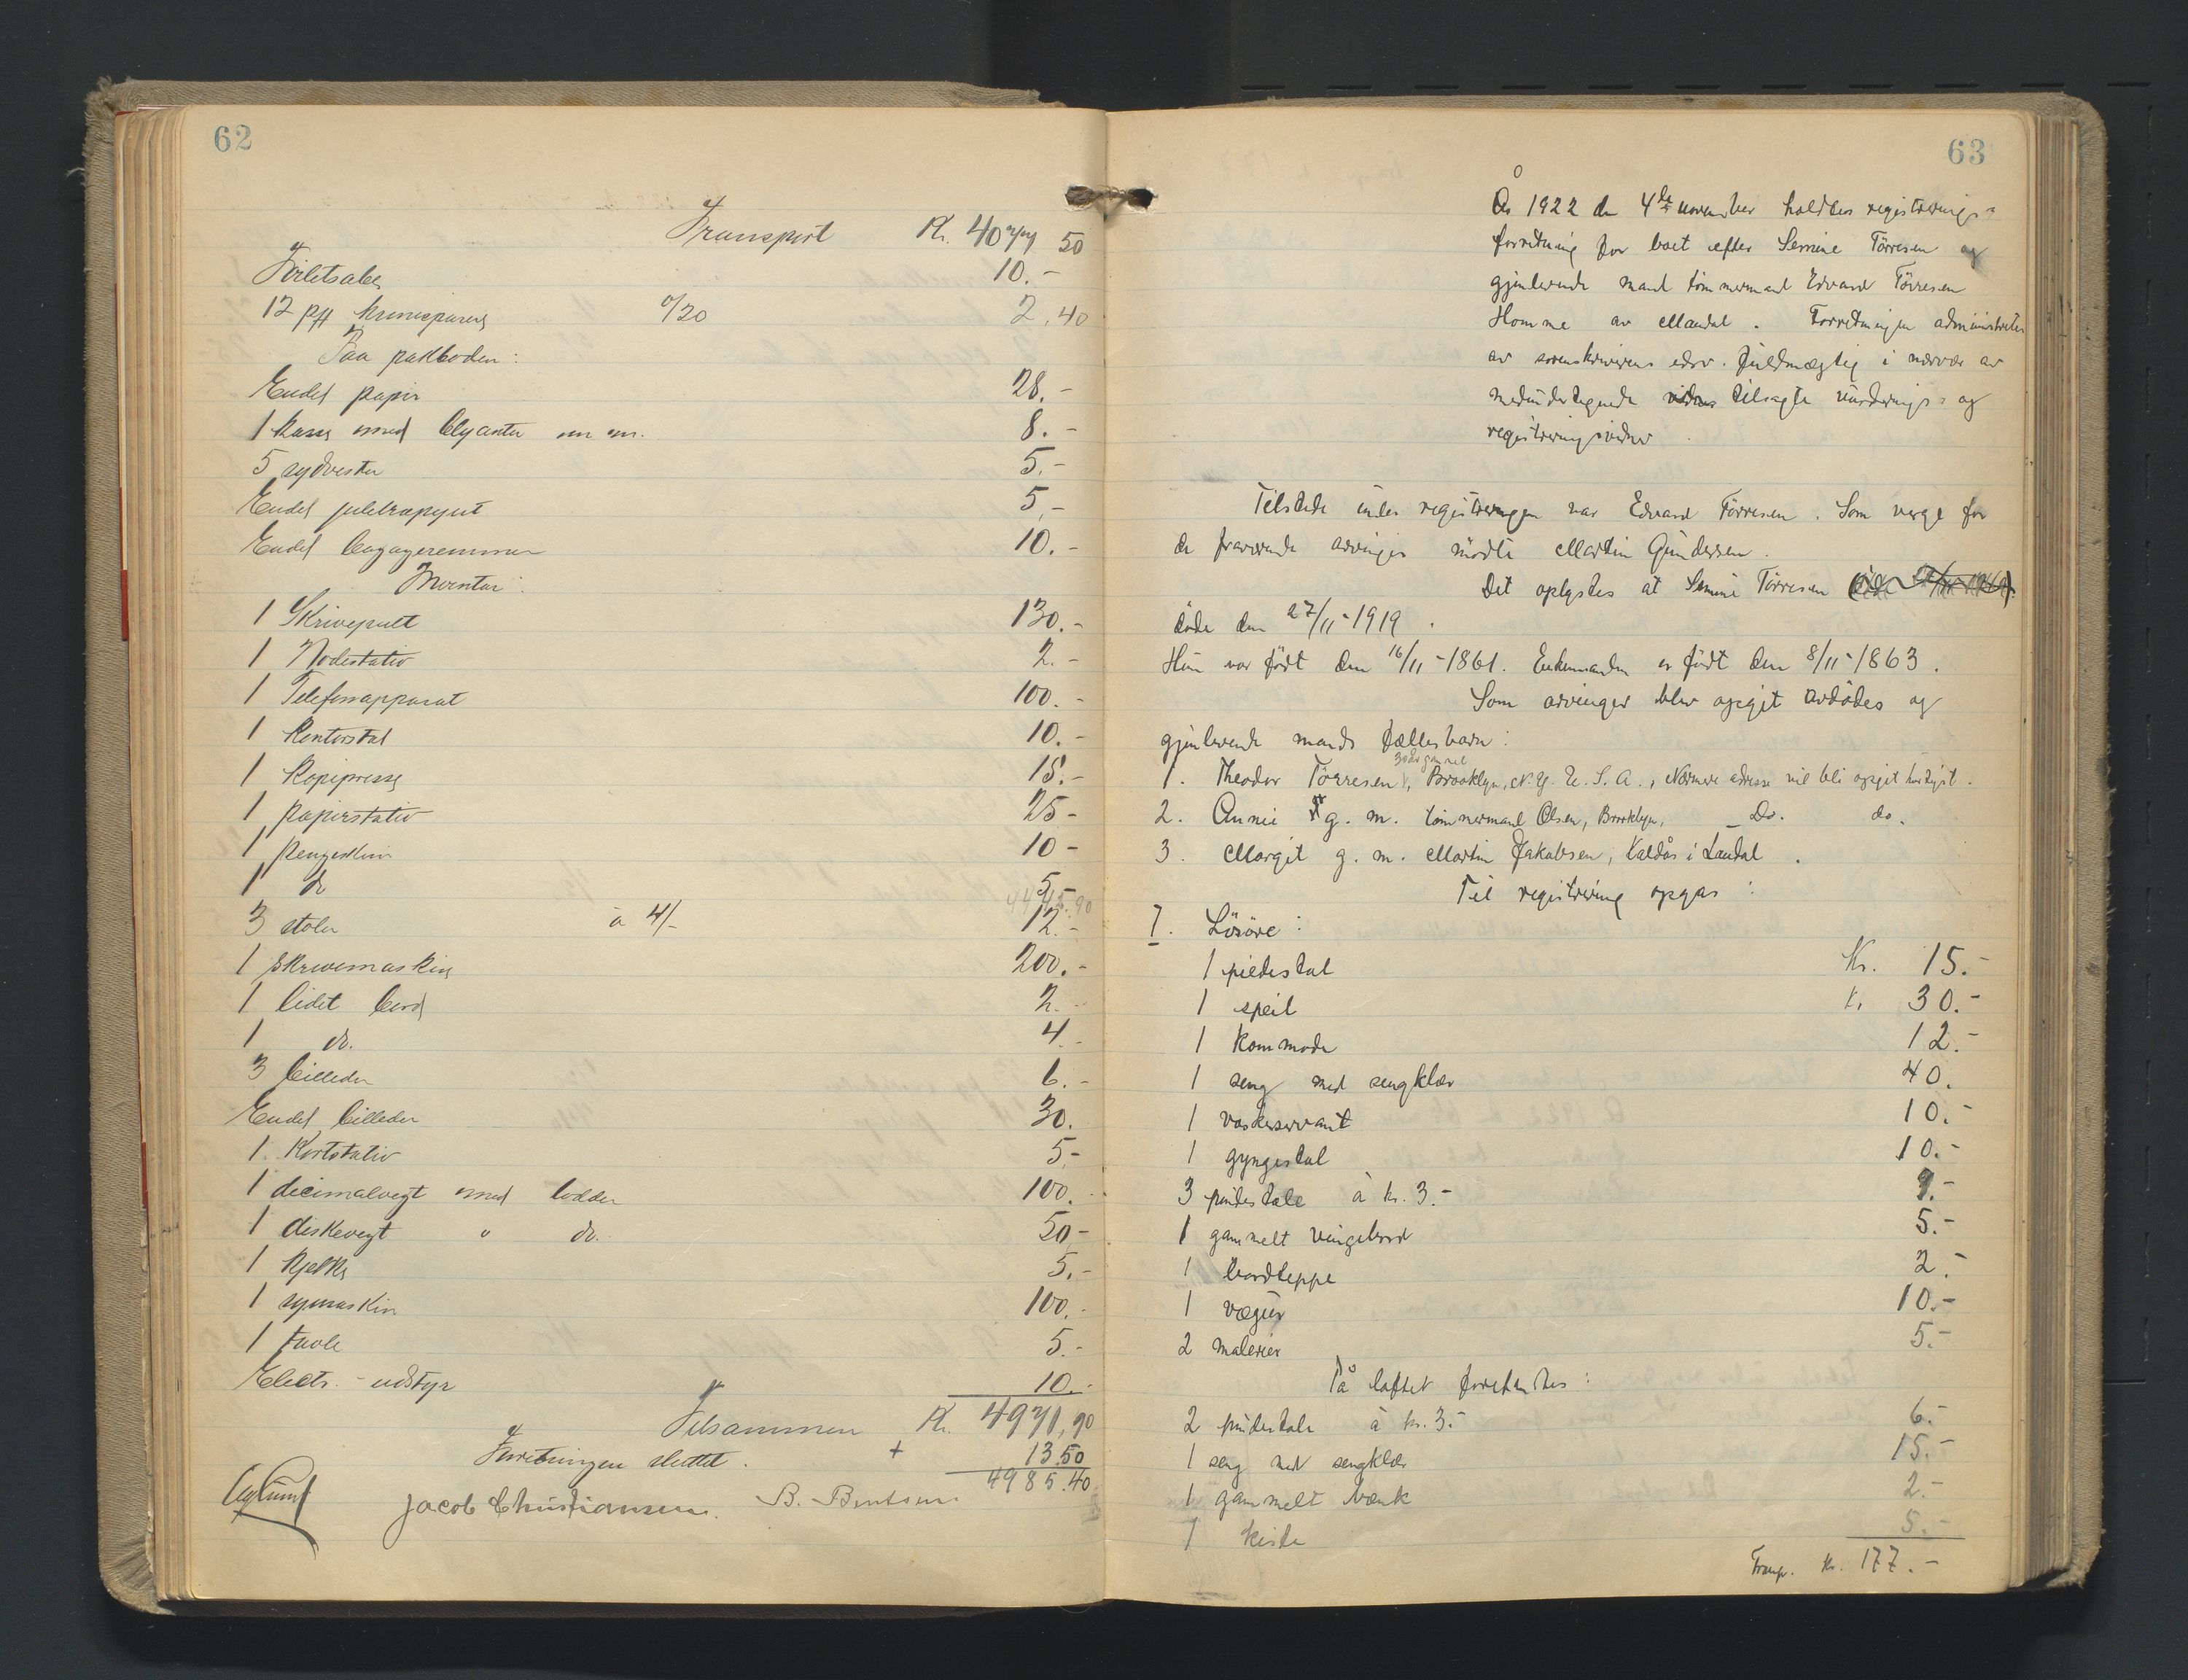 62
Transport Kr. 4077 50
Toiletsaker 10.-
12 pk 0/20 2,40
Paa pakboden:
Endel papir 28.-
1 kasse med blyanter m m. 8.-
5 sydvester 5.-
Endel juletræpynt 5,-
Endel bagageremmer 10.-
Inventar:
1 Skrivepult 130.-
1 Nodestativ 2.-
1 Telefonapparat 100.-
1 Kontorstol 10.-
1 Kopipresse 15.-
1 papirstativ 25-
1 pengeskrin 10-
1 do 5
4445.90
3 stoler à 4/- 12.-
1 skrivemaskin 200.-
1 lidet bord 2.-
1 do. 4.-
3 billeder 6.-
Endel billeder 30.
1 Kortstativ 5-
1 decimalvegt med lodder 100.-
1 diskevegt " do. 50-
1 kjelke 5.-
1 symaskin 100.-
1 tavle 5.-
Electr.-udstyr 10.-
Tilsammen Kr. 4971,90
Forretningen sluttet. + 13.50
4985.40
Jacob Christiansen. B. Bentsen
63
År 1922 den 4de november holdtes registrerings-
forretning for boet efter Semine Törresen og
gjenlevende mand tømmermand Edvard Törresen
Homme av Mandal. Forretningen administrertes
av sorenskriverens edsv. fuldmægtig i nærvær av
medundertegnede vidner tilsagte vurderings- og
registreringsvidner.
Tilstede under registreringen var Edvard Törresen. Som verge for
de fraværende arvinger mödte Martin Gundersen.
Det oplystes at Semine Törresen
döde den 27/11-1919.
Hun var födt den 16/11-1861. Enkemanden er födt den 8/11-1863.
Som arvinger blev opgit avdödes og
gjenlevende mands fællesbarn:
30 år gammel
1. Theodor Törresen, Brooklyn, N.Y. U.S.A., Nærmere adresse vil bli opgit hurtigst.
2. Annie g. m. tömmermand Olsen, Brooklyn, - Do. do.
3. Margit g. m. Martin Jakobsen, Kaldås i Laudal.
Til registrering opgas:
I. Lösöre:
1 piedestal Kr. 15.-
1 speil Kr 30.-
1 kommode 12.-
1 seng med sengklær 40.
1 vaskeservant 10.-
1 gyngestol 10.-
3 pindestole à kr. 3.- 9.-
1 gammelt vingebord 5.-
1 bordteppe 2.-
1 vægur 10.-
2 malerier 5.-
På loftet forefantes:
2 pindestole à kr. 3.- 6.-
1 seng med sengklær 15.-
1 gammelt bænk 2.-
1 kiste 5.-
Transp. Kr. 177.-